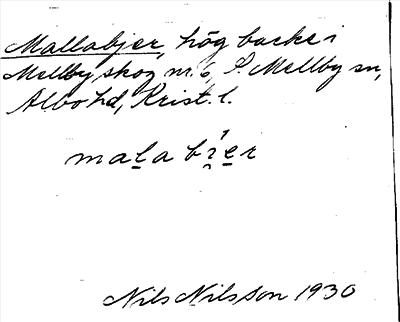 Mallabjer, hög backe i
Mellby skog nr. 6, S. Mellby sn,
Albo hd, Krist. l.
malabier
Nils Nilsson 1930